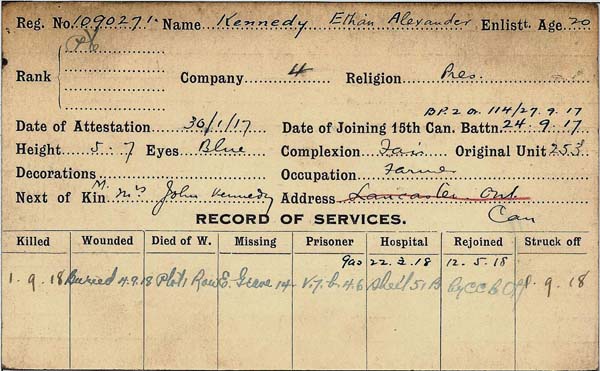 Reg. No. 1090271 Name Kennedy Ethan Alexander Enlistt. Age 20
Pte
Rank Company 4 Religion Pres.
B.P.2 O. 114/27.9.17
Date of Attestation 30/1/17 Date of Joining 15th Can. Battn. 24.9.17
Height 5-7 Eyes Blue Complexion Fair Original Unit 253
Decorations Occupation Farmer
Next of Kin M. Mrs John Kennedy Address Lancaster Ont
Can
RECORD OF SERVICES.
Killed Wounded Died of W. Missing Prisoner Hospital Rejoined Struck off
Gas 22.3.18 12.5.18
1.9.18 Buried 4.9.18 Plot 1 Row E. Grave 14 V.7.b.4.6 Sheet 51B by CCB Off 1.9.18